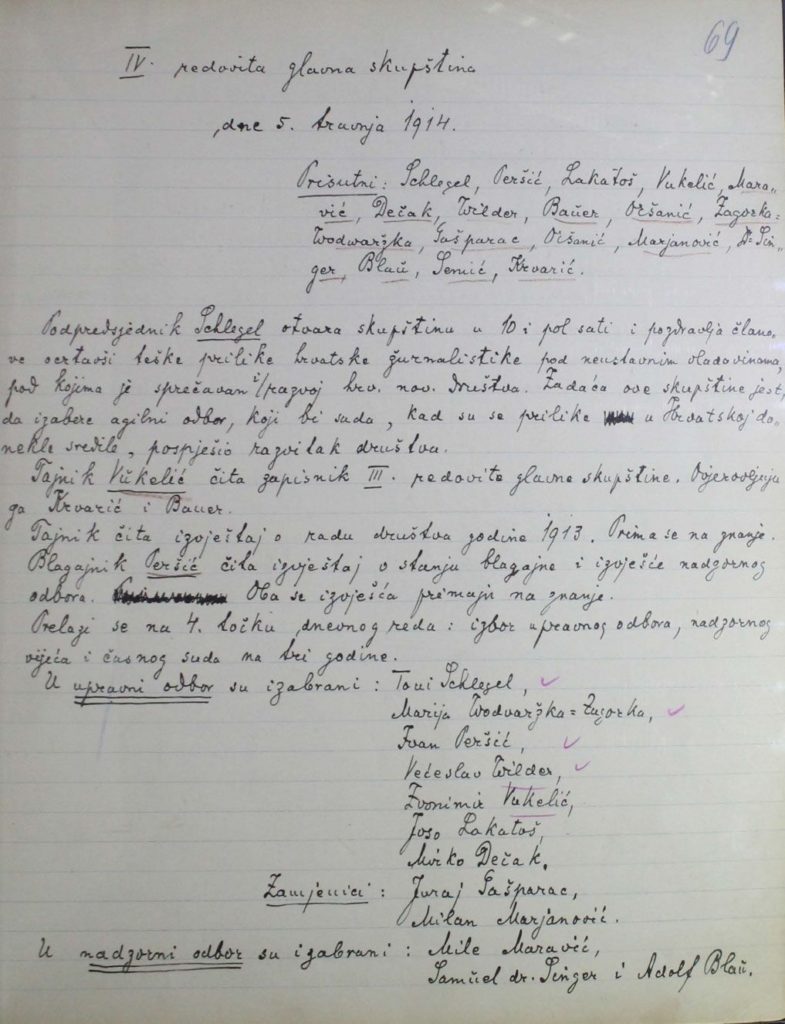 69
IV. redovita glavna skupština
dne 5. travnja 1914.
Prisutni: Schlegel, Peršić, Lakatoš, Vukelić, Mara-
vić, Dečak, Wilder, Bauer, Oršanić, Zagorka-
Wodwaržka, Gašparac, Oršanić, Marjanović, Dr Sin-
ger, Blau, Semić, Krvarić.
Podpredsjednik Schlegel otvara skupštinu u 10 i pol sati i pozdravlja člano-
ve ocrtavši teške prilike hrvatske žurnalistike pod neustavnim vladavinama,
pod kojima je sprečavan i razvoj hrv. nov. društva. Zadaća ove skupštine jest,
da izabere agilni odbor, koji bi sada, kad su se prilike u Hrvatskoj do-
nekle sredile, pospješio razvitak društva.
Tajnik Vukelić čita zapisnik III. redovite glavne skupštine. Ovjerovljuju
ga Krvarić i Bauer.
Tajnik čita izvještaj o radu društva godine 1913. Prima se na znanje.
Blagajnik Peršić čita izvještaj o stanju blagajne i izvješće nadzornog
odbora. Oba se izvješća primaju na znanje.
Prelazi se na 4. točku dnevnog reda: izbor upravnog odbora, nadzornog
vijeća i časnog suda na tri godine.
U upravni odbor su izabrani: Toni Schlegel,
Marija Wodvaržka=Zagorka,
Ivan Peršić,
Većeslav Wilder,
Zvonimir Vukelić,
Joso Lakatoš,
Mirko Dečak.
Zamjenici: Juraj Gašparac,
Milan Marjanović.
U nadzorni odbor su izabrani: Mile Maravić,
Samuel dr. Singer i Adolf Blau.